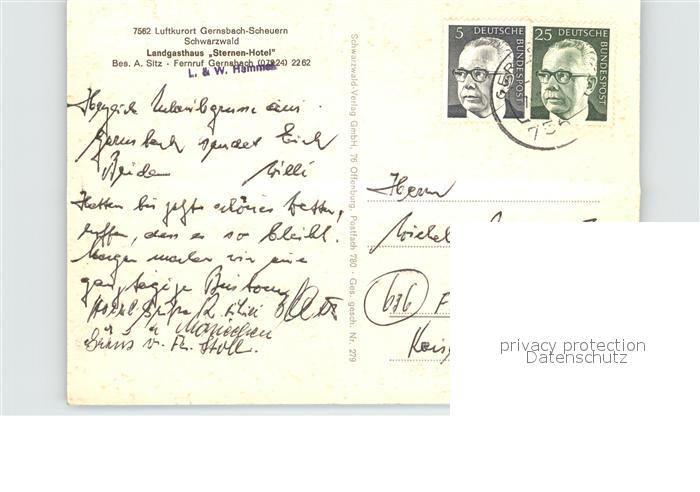 7562 Luftkurort Gernsbach-Scheuern
Schwarzwald
Landgasthaus „Sternen-Hotel"
Bes. A. Sitz - Fernruf Gernsbach (07224) 2262
L. & W. Hammes
Herzliche Urlaubsgrüsse aus
Gernsbach sendet Euch
Beiden Willi
Hatten bis jetzt schönes Wetter,
hoffen, dass es so bleibt.
Morgen machen wir eine
ganztägige Bustour
Mariechen
Grüss v. Fr. Stoll.
Schwarzwald-Verlag GmbH, 76 Offenburg, Postfach 780 · Ges. gesch. Nr. 279
5 DEUTSCHE BUNDESPOST
25 DEUTSCHE BUNDESPOST
Herrn
636 F
privacy protection
Datenschutz